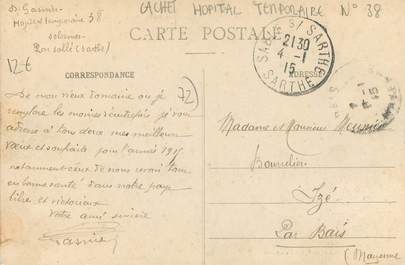 CACHET HOPITAL TEMPORAIRE N° 38
Hopital temporaire 38
Solesmes
Par Sablé (Sarthe)
12€
CARTE POSTALE
SABLE S/ SARTHE
21 30
4 - 1
15
SARTHE
CORRESPONDANCE
ADRESSE
72
De mon vieux domaine ou je
remplace les moines je vous
adresse à tous deux mes meilleurs
vœux et souhaits pour l'année 1915
notamment ceux de nous revoir tous
en bonne santé dans notre pays
libre et victorieux
Votre ami sincère
Madame et Monsieur
Bourrelier
Izé
Par Bais
(Mayenne